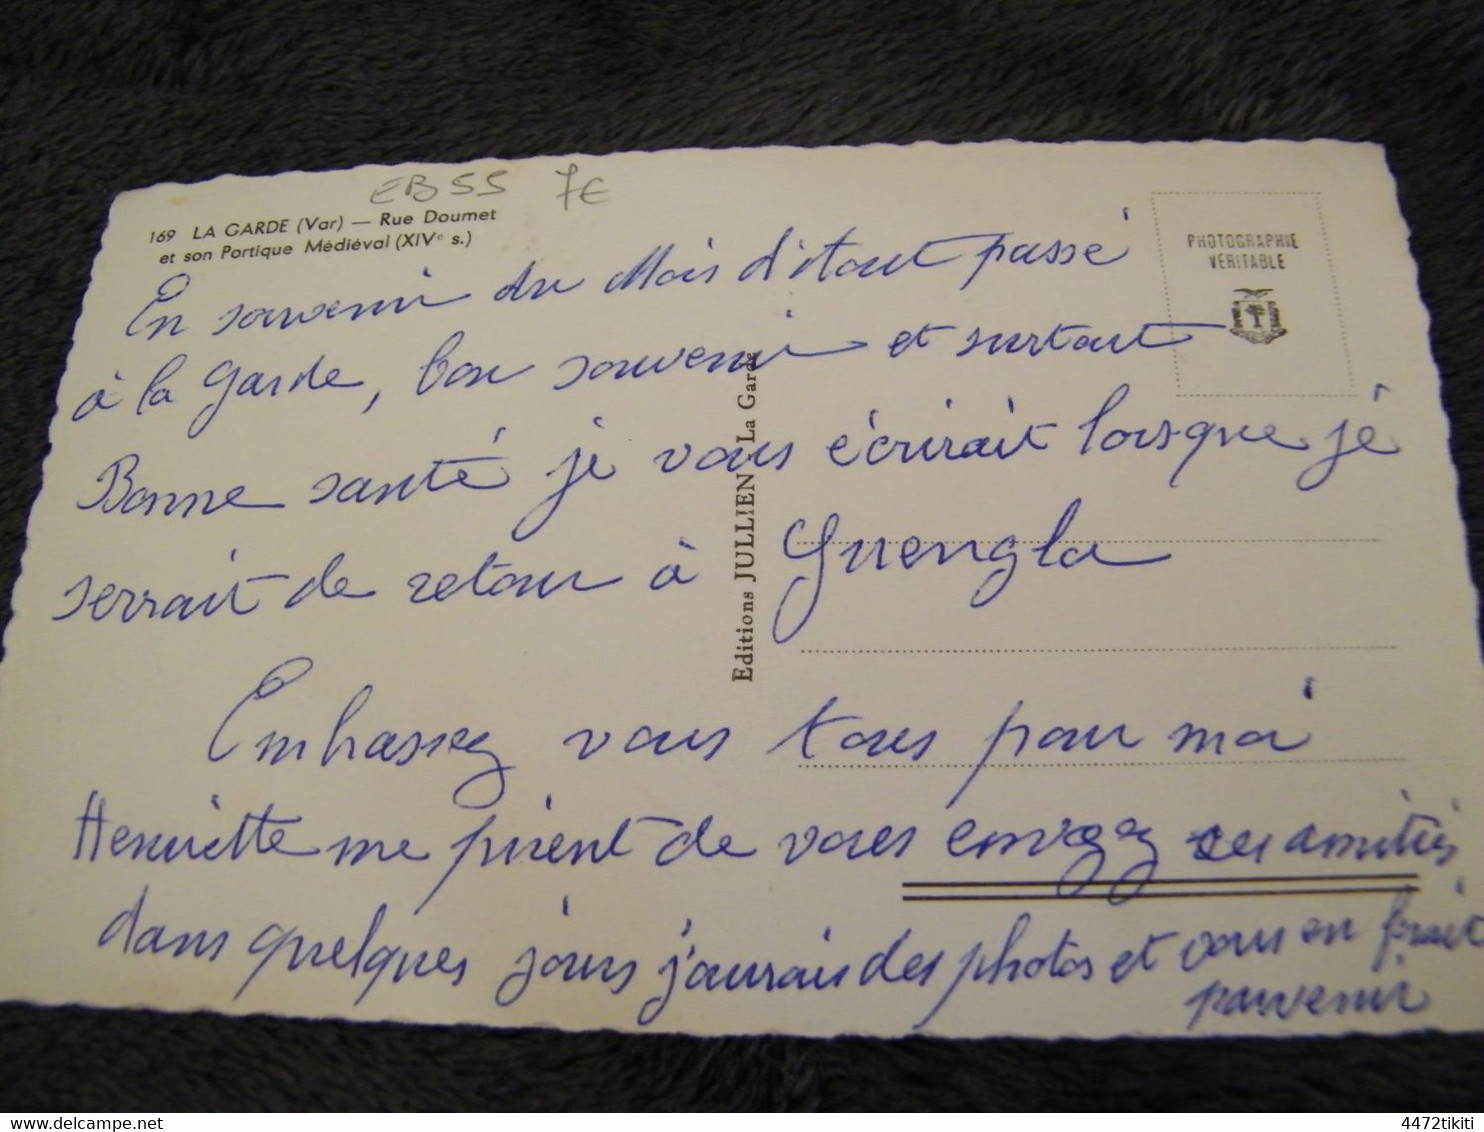 EB55 7€
169 LA GARDE (Var) — Rue Doumet
et son Portique Médiéval (XIVe s.)
PHOTOGRAPHIE
VERITABLE
En souvenir du Mois d'itout passé
à la garde, bon souvenir et surtout
Bonne santé je vous écrirait lorsque je
serrait de retour à Guengla
Editions JULLIEN La Garde
Embassez vous tous pour moi
Henriette me prient de vous envoyez ses amitiés
dans quelques jours j'aurais des photos et vous en frait
parvenir
delcampe.net
4472tikiti